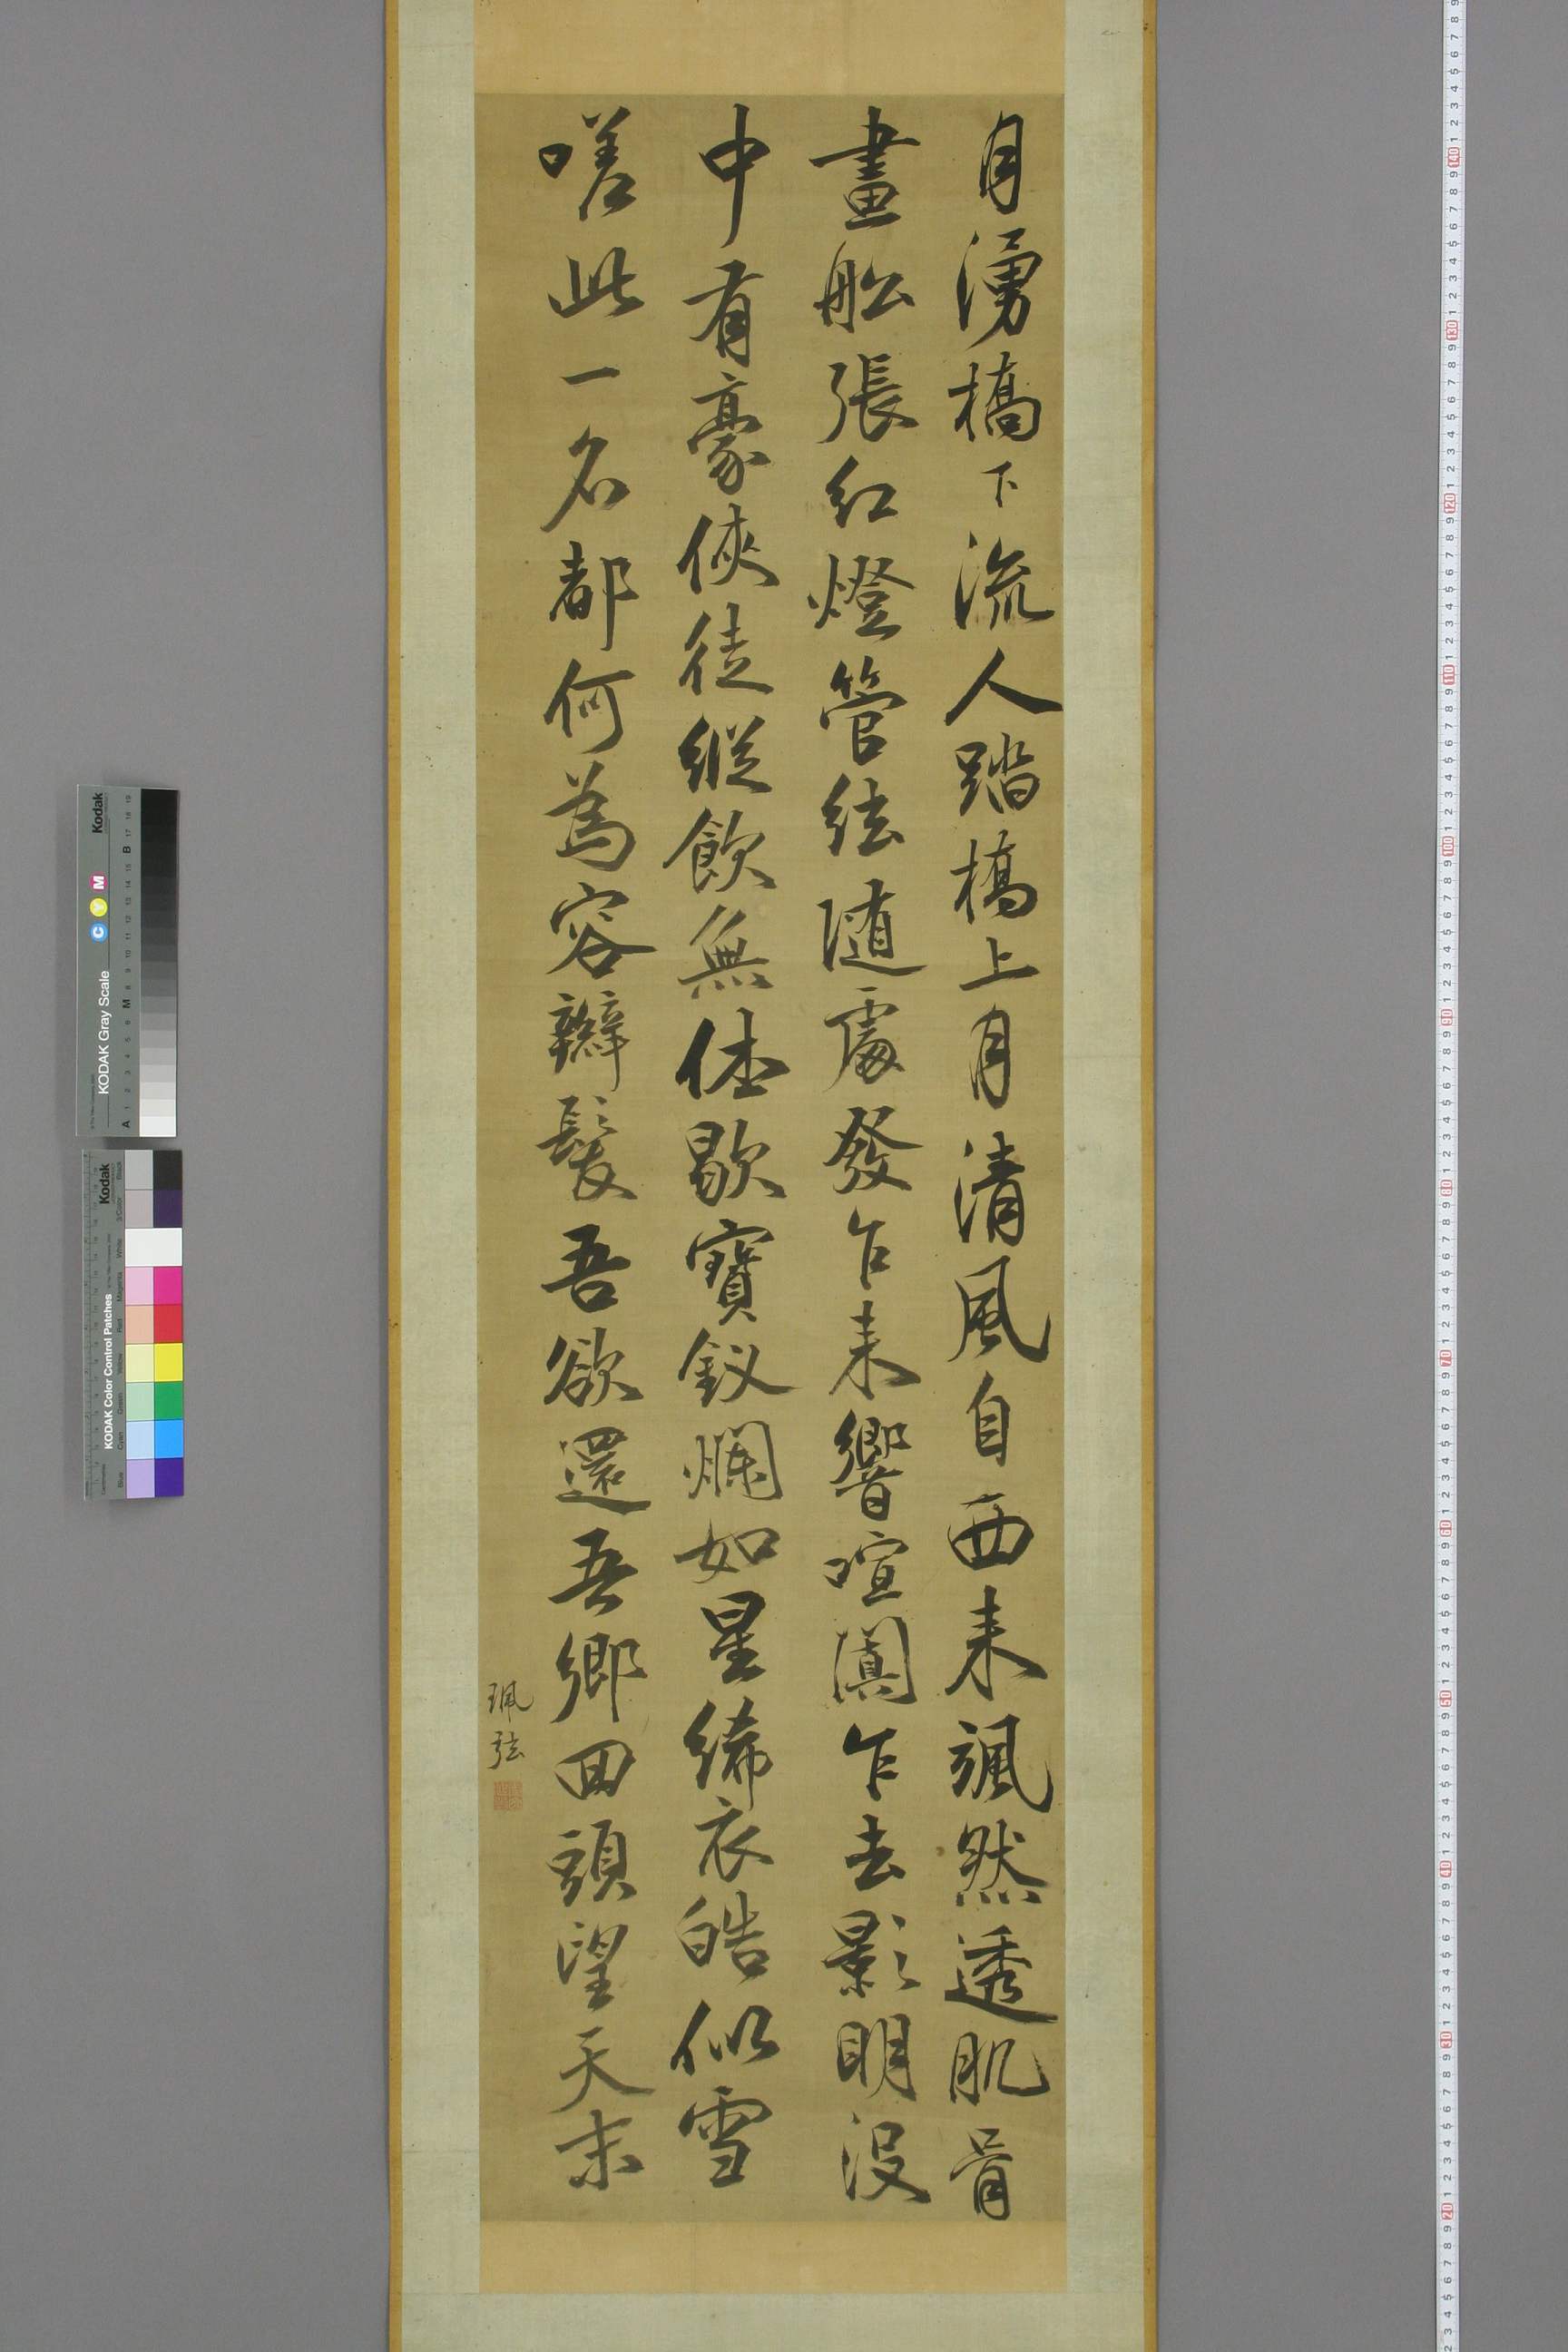 月湧橋下流人踏橋上月清風自西来颯然透肌骨
畫舩張紅燈管絃随處發乍来響喧闐乍去影明沒
中有豪俠徒縱飲無休歇寶釵爛如星絺衣皓似雪
嗟此一名都何為容辮髮吾欲還吾鄉回頭望天末
珮弦
KODAK Gray Scale
Kodak
C Y M
A 1 2 3 4 5 6 M 8 9 10 11 12 13 14 15 B 17 18 19
KODAK Color Control Patches
Kodak
Blue Cyan Green Yellow Red Magenta White 3/Color Black